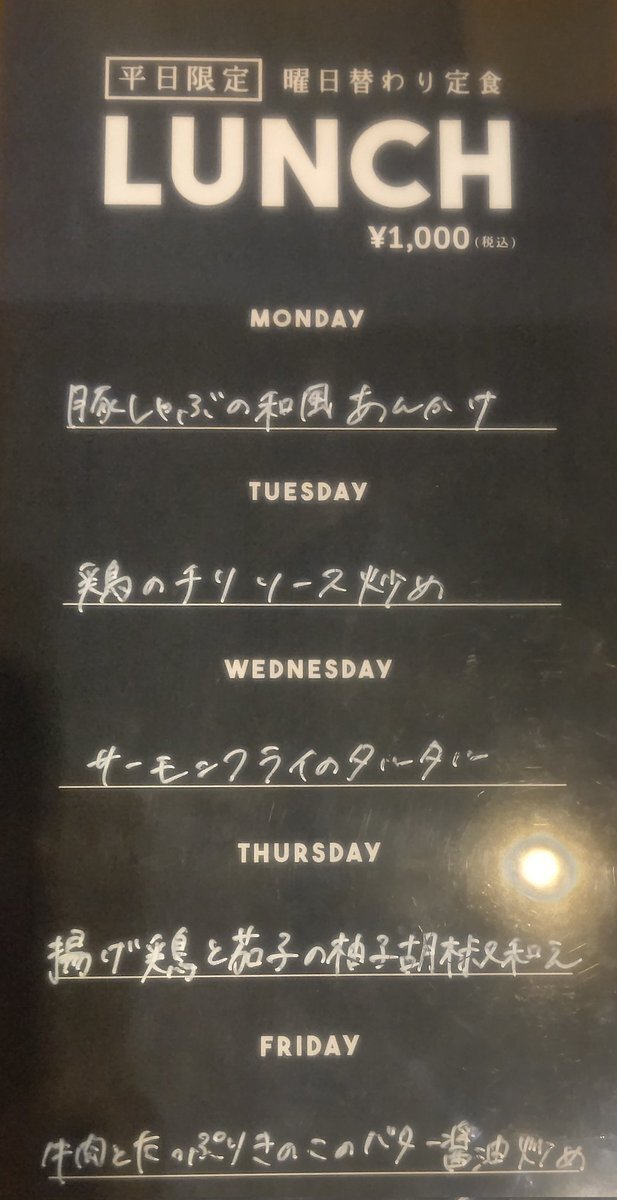 平日限定 曜日替わり定食
LUNCH
¥1,000(税込)
MONDAY
豚しゃぶの和風あんかけ
TUESDAY
鶏のチリソース炒め
WEDNESDAY
サーモンフライのタルタル
THURSDAY
揚げ鶏と茄子の柚子胡椒和え
FRIDAY
牛肉とたっぷりきのこのバター醤油炒め